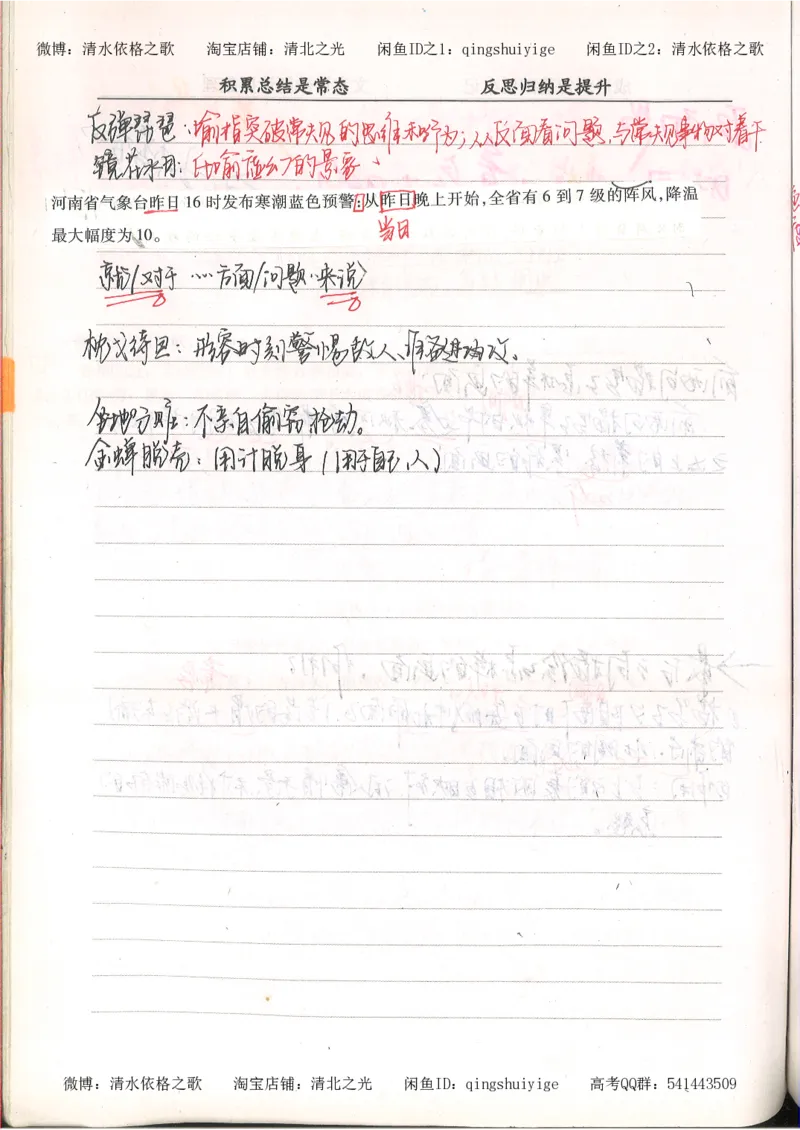 微博：清水依格之歌 淘宝店铺：清北之光 闲鱼ID之1：qingshuiyige 闲鱼ID之2：清水依格之歌
积累总结是常态 反思归纳是提升
反弹琵琶：喻指突破常规的思维和行为；从反面看问题，与常规事物对着干
镜花水月：比喻虚幻的景象
河南省气象台昨日16时发布寒潮蓝色预警：从昨日晚上开始，全省有6到7级的阵风，降温
当日
最大幅度为10。
就/对于……方面/问题…来说
枕戈待旦：形容时刻警惕敌人、准备进攻。
不亲自偷窃抢劫。
金蝉脱壳：用计脱身（用于自己，人）
微博：清水依格之歌 淘宝店铺：清北之光 闲鱼ID：qingshuiyige 高考QQ群：541443509